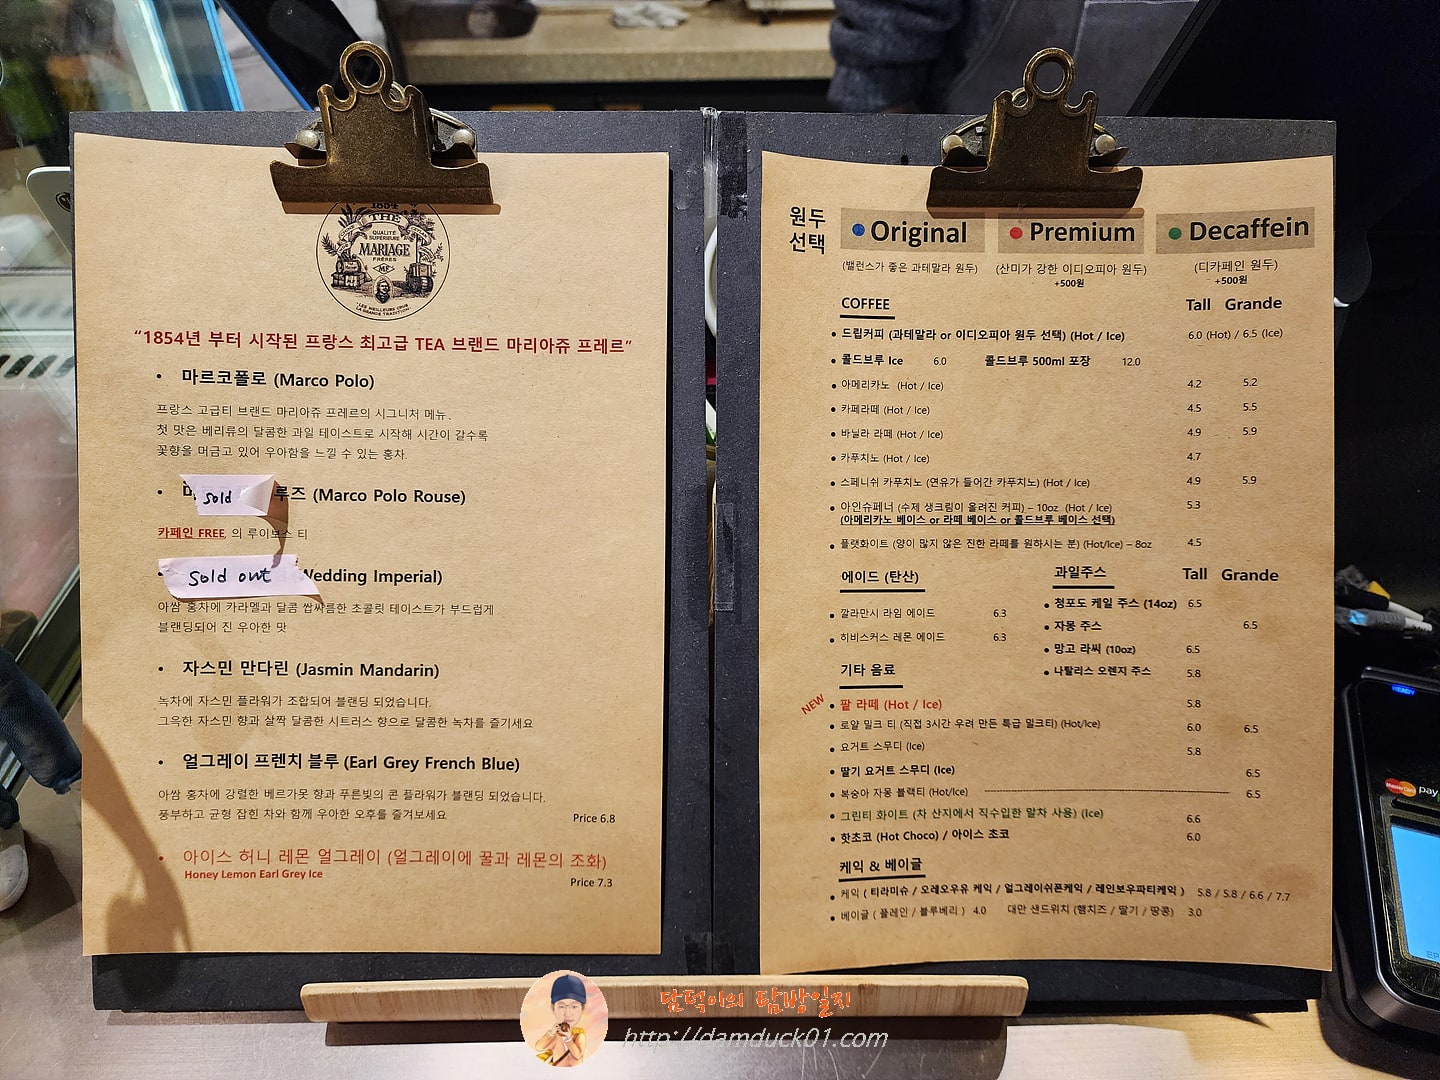 1854
THE
QUALITÉ
SUPÉRIEURE
MARIAGE
FRÈRES
MF
"LES MEILLEURS CRUS
LA GRANDE TRADITION"
"1854년 부터 시작된 프랑스 최고급 TEA 브랜드 마리아쥬 프레르"
• 마르코폴로 (Marco Polo)
프랑스 고급티 브랜드 마리아쥬 프레르의 시그니처 메뉴.
첫 맛은 베리류의 달콤한 과일 테이스트로 시작해 시간이 갈수록
꽃향을 머금고 있어 우아함을 느낄 수 있는 홍차.
• sold 루즈 (Marco Polo Rouse)
카페인 FREE 의 루이보스 티
Sold out Wedding Imperial)
아쌈 홍차에 카라멜과 달콤 쌉싸름한 초콜릿 테이스트가 부드럽게
블랜딩되어 진 우아한 맛
• 자스민 만다린 (Jasmin Mandarin)
녹차에 자스민 플라워가 조합되어 블랜딩 되었습니다.
그윽한 자스민 향과 살짝 달콤한 시트러스 향으로 달콤한 녹차를 즐기세요
• 얼그레이 프렌치 블루 (Earl Grey French Blue)
아쌈 홍차에 강렬한 베르가못 향과 푸른빛의 콘 플라워가 블랜딩 되었습니다.
풍부하고 균형 잡힌 차와 함께 우아한 오후를 즐겨보세요
Price 6.8
• 아이스 허니 레몬 얼그레이 (얼그레이에 꿀과 레몬의 조화)
Honey Lemon Earl Grey Ice
Price 7.3
원두 선택
Original Premium Decaffein
(밸런스가 좋은 과테말라 원두) (산미가 강한 이디오피아 원두) (디카페인 원두)
+500원 +500원
COFFEE Tall Grande
• 드립커피 (과테말라 or 이디오피아 원두 선택) (Hot / Ice) 6.0 (Hot) / 6.5 (Ice)
• 콜드브루 Ice 6.0 콜드브루 500ml 포장 12.0
• 아메리카노 (Hot / Ice) 4.2 5.2
• 카페라떼 (Hot / Ice) 4.5 5.5
• 바닐라 라떼 (Hot / Ice) 4.9 5.9
• 카푸치노 (Hot / Ice) 4.7
• 스페니쉬 카푸치노 (연유가 들어간 카푸치노) (Hot / Ice) 4.9 5.9
• 아인슈페너 (수제 생크림이 올려진 커피) – 10oz (Hot / Ice) 5.3
(아메리카노 베이스 or 라떼 베이스 or 콜드브루 베이스 선택)
• 플랫화이트 (양이 많지 않은 진한 라떼를 원하시는 분) (Hot/Ice) – 8oz 4.5
에이드 (탄산)
• 깔라만시 라임 에이드 6.3
• 히비스커스 레몬 에이드 6.3
과일주스 Tall Grande
• 청포도 케일 주스 (14oz) 6.5
• 자몽 주스 6.5
• 망고 라씨 (10oz) 6.5
• 나탈리스 오렌지 주스 5.8
기타 음료
NEW • 팥 라떼 (Hot / Ice) 5.8
• 로얄 밀크 티 (직접 3시간 우려 만든 특급 밀크티) (Hot/Ice) 6.0 6.5
• 요거트 스무디 (Ice) 5.8
• 딸기 요거트 스무디 (Ice) 6.5
• 복숭아 자몽 블랙티 (Hot/Ice) 6.5
• 그린티 화이트 (차 산지에서 직수입한 말차 사용) (Ice) 6.6
• 핫초코 (Hot Choco) / 아이스 초코 6.0
케익 & 베이글
• 케익 ( 티라미슈 / 오레오우유 케익 / 얼그레이쉬폰케익 / 레인보우파티케익 ) 5.8 / 5.8 / 6.6 / 7.7
• 베이글 ( 플레인 / 블루베리 ) 4.0 대만 샌드위치 (햄치즈 / 딸기 / 땅콩) 3.0
MasterCard pay
담덕이의 탐방일지
http://damduck01.com